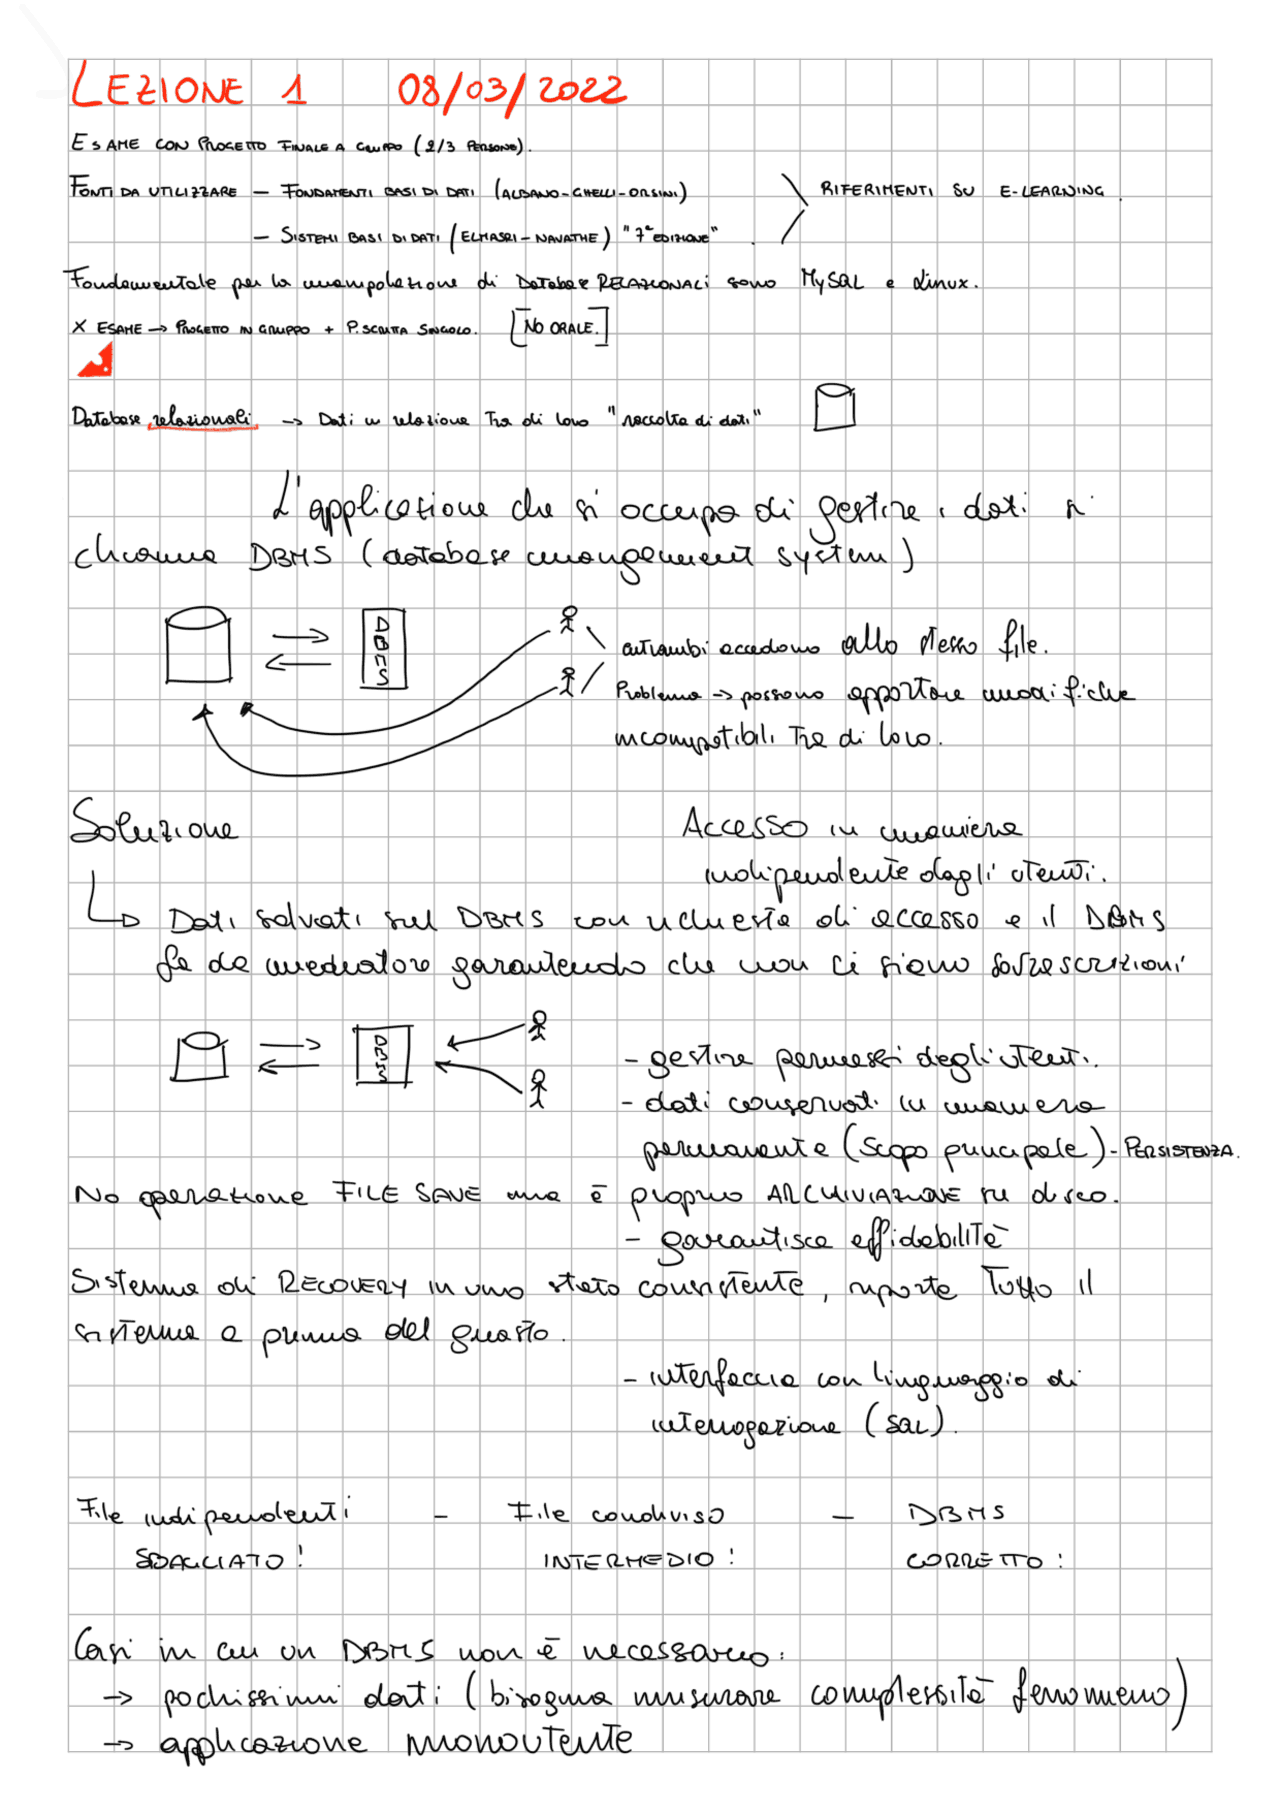 LEZIONE 1 08/03/2022
ESAME CON PROGETTO FINALE A GRUPPO (2/3 PERSONE).
FONTI DA UTILIZZARE – FONDAMENTI BASI DI DATI (ALBANO-GHELLI-ORSINI)
RIFERIMENTI SU E-LEARNING.
– SISTEMI BASI DI DATI (ELMASRI-NAVATHE) "7ª EDIZIONE".
Fondamentale per la manipolazione di Database RELAZIONALI sono MySQL e Linux.
X ESAME → PROGETTO IN GRUPPO + P. SCRITTA SINGOLO. [NO ORALE.]
Database relazionali → Dati in relazione tra di loro "raccolta di dati"
L'applicazione che si occupa di gestire i dati si
chiama DBMS (database mangement system)
DBMS
entrambi accedono allo stesso file.
Problema → possono apportare modifiche
incompatibili tra di loro.
Soluzione
Accesso in maniera
indipendente dagli utenti.
Dati salvati sul DBMS con richiesta di accesso e il DBMS
fa da mediatore garantendo che non ci siano sovrascrizioni
DBMS
- gestire permessi degli utenti.
- dati conservati in maniera
permanente (scopo principale) - PERSISTENZA.
No operazione FILE SAVE ma è proprio ARCHIVIAZIONE su disco.
- garantisce affidabilità
Sistema di RECOVERY in uno stato consistente, riporta tutto il
sistema a prima del guasto.
- interfaccia con linguaggio di
interrogazione (SQL).
File indipendenti – File condiviso – DBMS
SBAGLIATO! INTERMEDIO! CORRETTO!
Casi in cui un DBMS non è necessario:
→ pochissimi dati (bisogna misurare complessità fenomeno)
→ applicazione monoutente